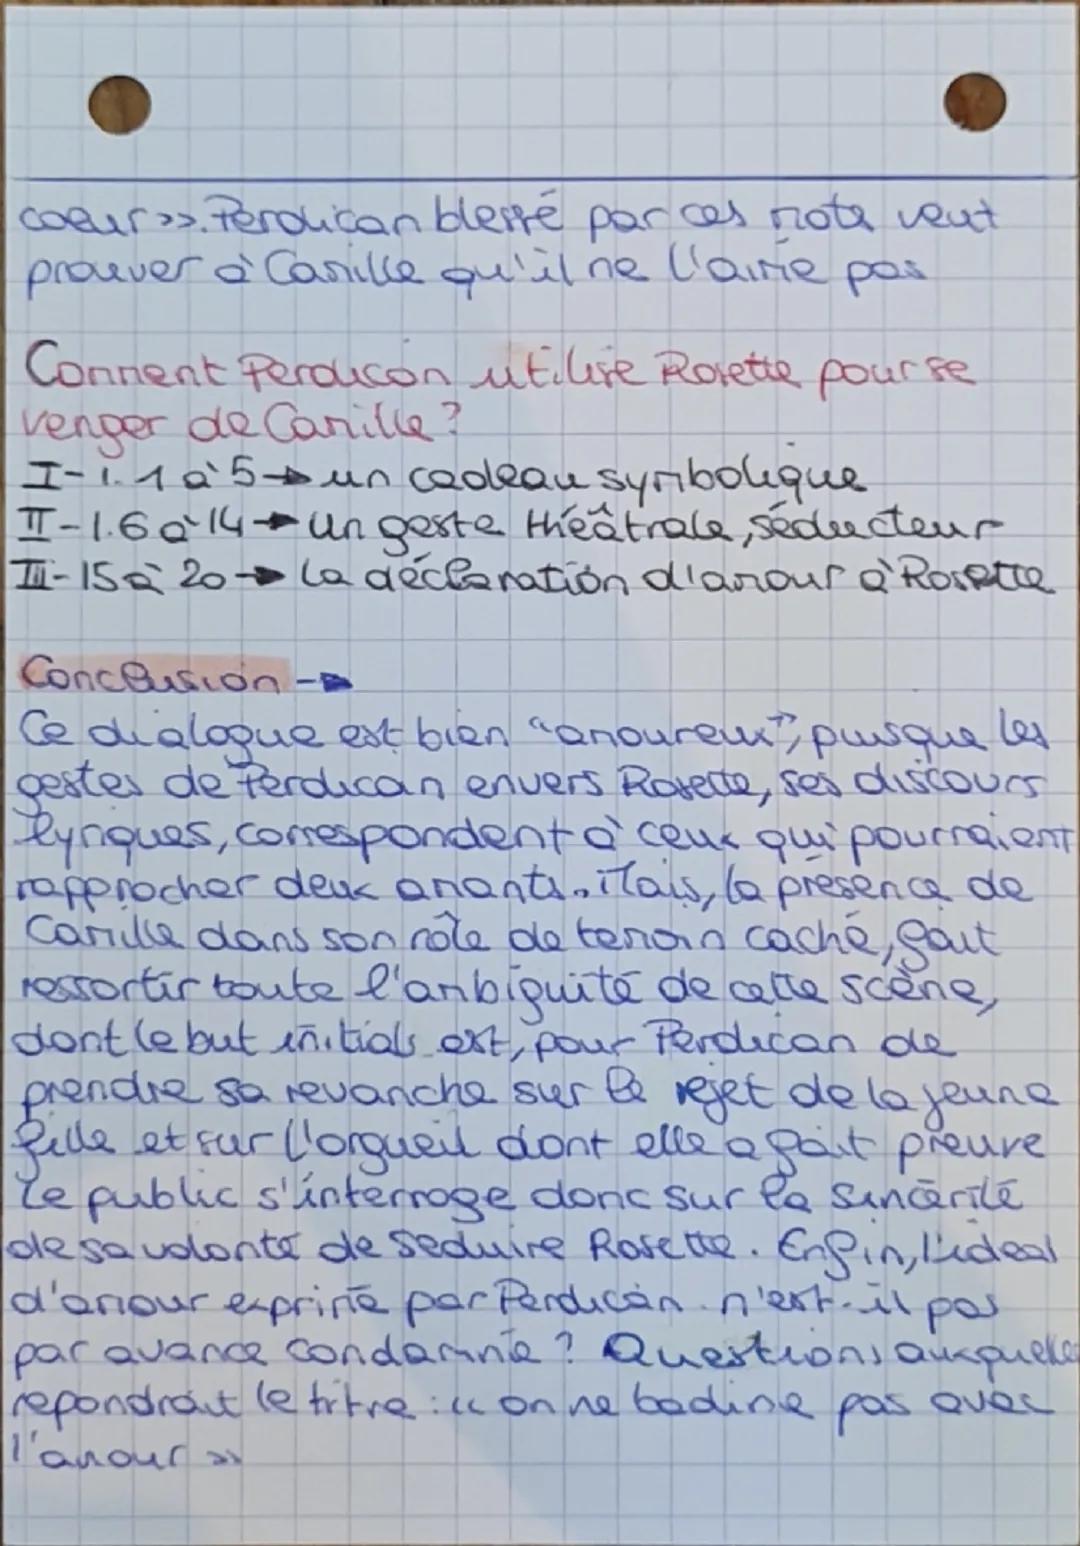 coeur ». Perdican blessé par ces mots veut
prouver à Camille qu'il ne l'aime pas
Comment Perdican utilise Rosette pour se
venger de Camille ?
I - l. 1 à 5 → un cadeau symbolique
II - l. 6 à 14 → Un geste théâtrale, séducteur
III - 15 à 20 → La déclaration d'amour à Rosette
Conclusion →
Ce dialogue est bien "amoureux", puisque les
gestes de Perdican envers Rosette, ses discours
lyriques, correspondent à ceux qui pourraient
rapprocher deux amants. Mais, la présence de
Camille dans son rôle de temoin caché, fait
ressortir toute l'ambiguité de cette scène,
dont le but initials est, pour Perdican de
prendre sa revanche sur le rejet de la jeune
fille et sur l'orgueil dont elle a fait preuve
Le public s'interroge donc sur la sincérité
de sa volonté de seduire Rosette. Enfin, l'idéal
d'amour exprimé par Perdican n'est-il pas
par avance condamné ? Questions auxquelles
repondrait le titre : « on ne badine pas avec
l'amour »